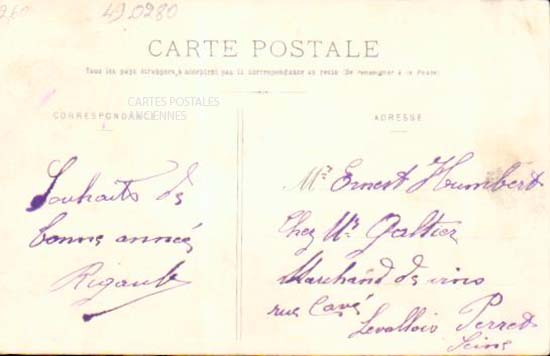 260
49.0280
CARTE POSTALE
Tous les pays étrangers n'acceptent pas la correspondance au recto (Se renseigner à la Poste)
CARTES POSTALES
ANCIENNES
CORRESPONDANCE
Souhaits de
bonne année
Rigault
ADRESSE
Mr Ernest Humbert
Chez Mr Galtier
Marchand de vins
rue Cavé
Levallois Perret
Seine